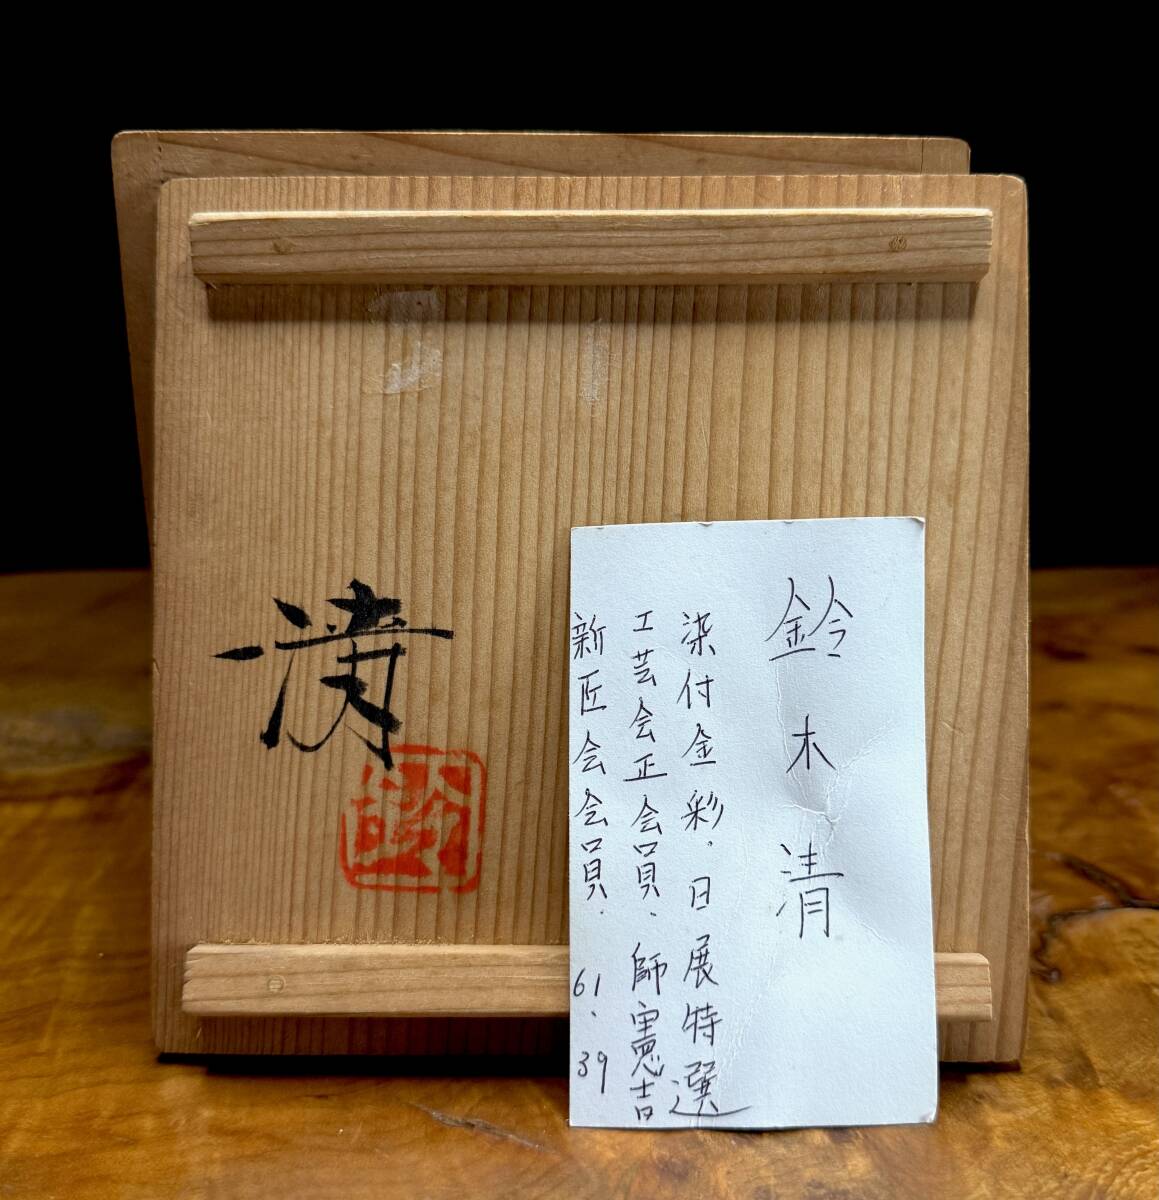 鈴木清
染付金彩.日展特選
工芸会正会員.師憲吉
新匠会会員.61.39
清